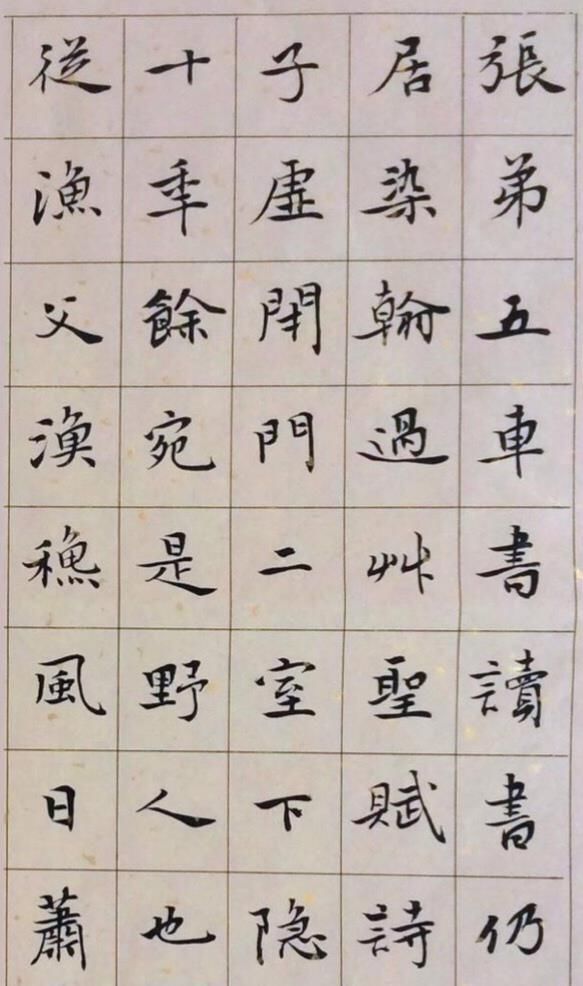 張弟五車書讀書仍
居染翰過艸聖賦詩
子虛閑門二室下隐
十年餘宛是野人也
従漁父漁穐風日蕭